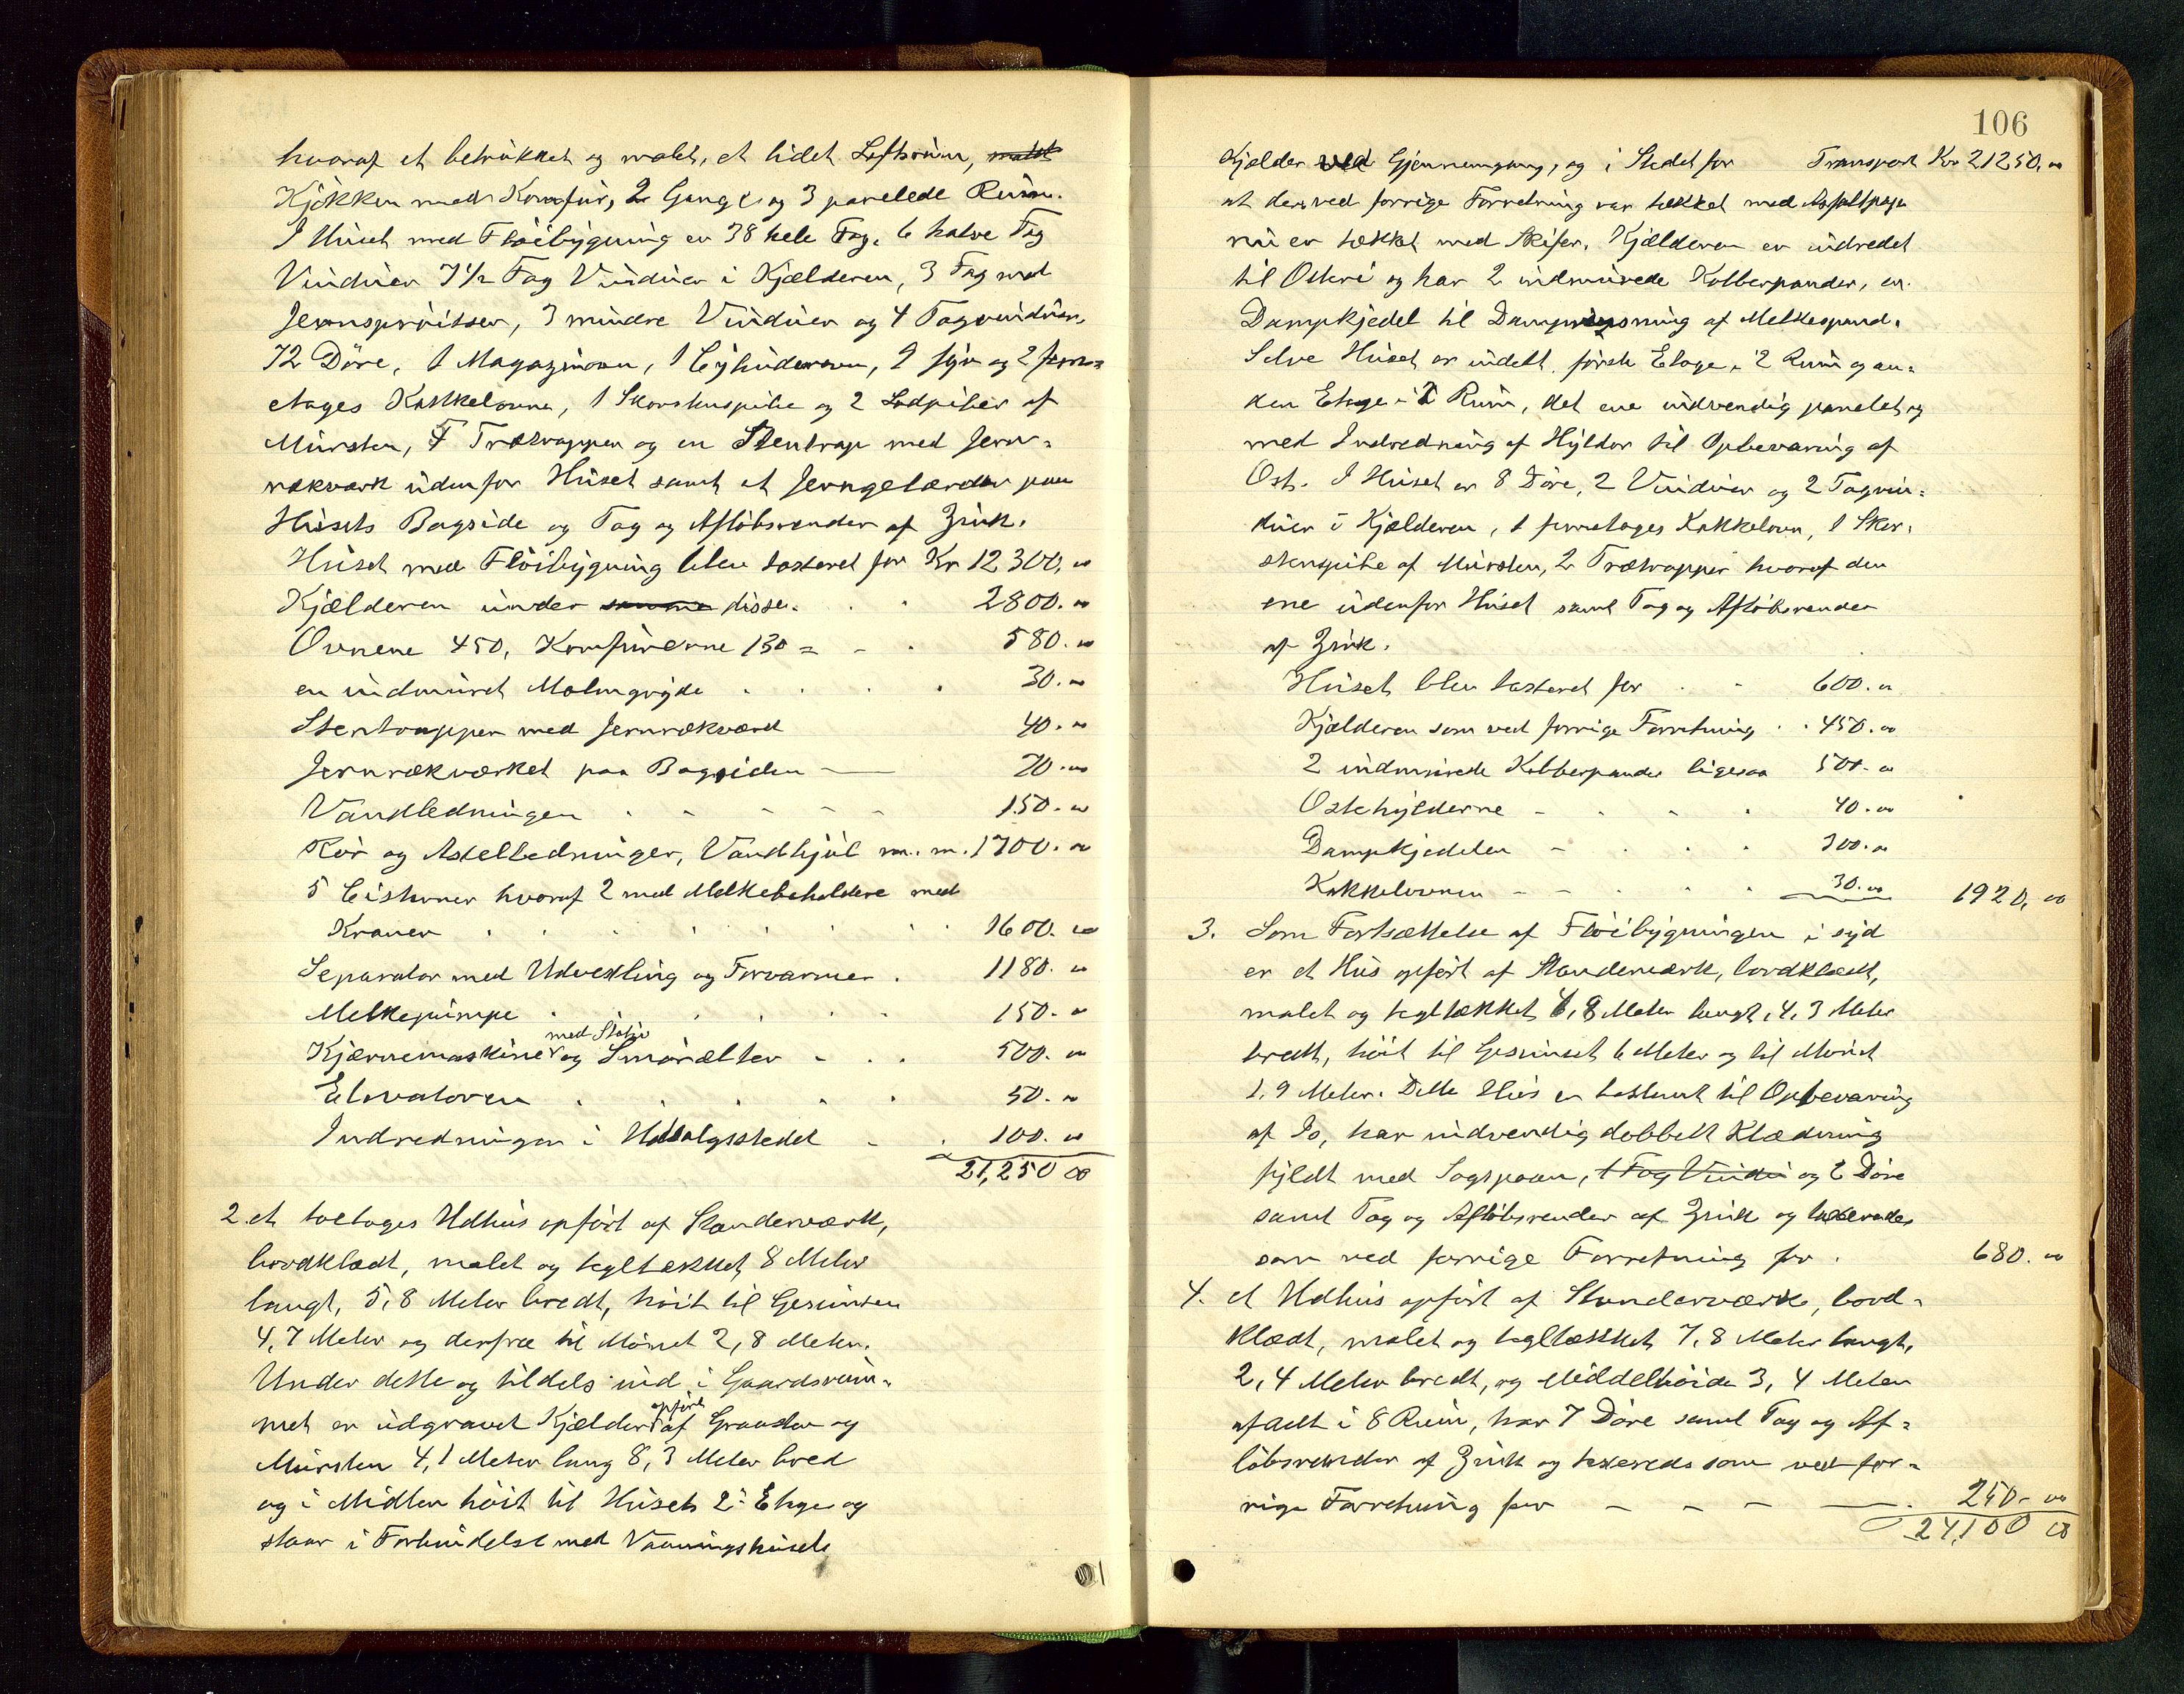 hvoraf et betrukket og malet, et lidet Loftsrum, malet
Kjökken med Komfur, 2 Gange og 3 panelede Rum.
I Huset med Flöibygning er 38 hele Fag, 6 halve Fag
Vinduer 7 1/2 Fag Vinduer i Kjælderen, 3 Fag med
Jernsprösser, 3 mindre Vinduer og 4 Tagvinduer,
72 Döre, 1 Magazinovn, 1 Cylinderovn, 2 fyr og 2 firem-
etages Kakkelovne, 1 Skorstenspibe og 2 Lodpiber af
Mursten, 7 Trætrapper og en Stentrap med Jern-
rækværk udenfor Huset samt et Jerngelænder paa
Husets Bagside og Tag og Aflöbsrender af Zink.
Huset med Flöibygning blev taxteret for Kr 12300,00
Kjælderen under samme disse . . 2800.00
Ovnene 450, Komfurerne 130 = - . 580.00
en indmuret Malmgryde . . . . 30.00
Stentrappen med Jernrækværk 40.00
Jernrækværket paa Bagsiden — 70.00
Vandledningen . - - - - 150.00
Rör og Axelledninger, Vandhjul m. m. 1700.00
5 Cisterner hvoraf 2 med Melkebeholdere med
Kraner . . . . . . . 1600.00
Separator med Udvexling og Forvarmer . 1180.00
Melkepumpe . . . . . 150.00
med Stativ
Kjærnemaskine og Smörælter - . . 500.00
Elevatoren . . . . . 50.00
Indredningen i Udsalgsstedet - . 100.00
21,250 00
2. et toetages Udhus opfört af Standerværk,
bordklædt, malet og tegltækket 8 Meter
langt, 5,8 Meter bredt, höit til Gesimsen
4,7 Meter og derfra til Mönet 2,8 Meter.
Under dette og tildels ind i Gaardsrum-
opfört
met er udgravet Kjælder af Graasten og
Mursten 4,1 Meter lang 8,3 Meter bred
og i Midten höit til Husets 2. Etage og
staar i Forbindelse med Vaaningshusets
106
Kjælder ved Gjennemgang, og i Stedet for Transport Kr 21250.00
at den ved forrige Forretning var tækket med Asfaltpap
nu er tækket med Skifer. Kjælderen er indredet
til Osteri og har 2 indmurede Kobberpander, en
Dampkjedel til Damprensning af Melkespand.
Selve Huset er indelt förste Etage i 2 Rum og an-
den Etage i 2 Rum, det ene indvendig panelet og
med Indredning af Hylder til Opbevaring af
Ost. I Huset er 8 Döre, 2 Vinduer og 2 Tagvin-
duer i Kjælderen, 1 firmetages Kakkelovn, 1 Skor-
stenspibe af Mursten, 2 Trætrapper hvoraf den
ene udenfor Huset samt Tag og Aflöbsrender
af Zink.
Huset blev taxteret for . - 600.00
Kjælderen som ved forrige Forretning . . 450.00
2 indmurede Kobberpander ligesaa 500.00
Ostehylderne - . . . 40.00
Dampkjedelen - . . . 300.00
Kakkelovnen - - . . . 30.00 1920,00
3. Som Fortsættelse af Flöibygningen i syd
er et Hus opfört af Standerværk, bordklædt,
malet og tegltækket 4,8 Meter langt, 4,3 Meter
bredt, höit til Gesimset 6 Meter og til Mönet
1,9 Meter. Dette Hus er bestemt til Opbevaring
af Is, har indvendig dobbelt Klædning
fyldt med Sagspaan, 1 Fag Vindu og 2 Döre
samt Tag og Aflöbsrender af Zink og taxeredes
som ved forrige Forretning for . 680.00
4. et Udhus opfört af Standerværk, bord-
klædt, malet og tegltækket 7,8 Meter langt,
2,4 Meter bredt, og Middelhöide 3,4 Meter
afdelt i 8 Rum, har 7 Döre samt Tag og Af-
löbsrender af Zink og taxeredes som ved for-
rige Forretning for - - - — . 250-00
24,100 00